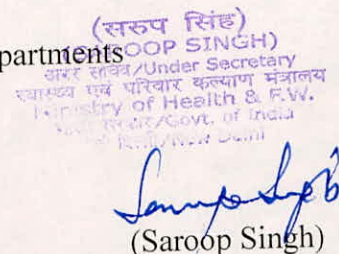 (सरुप सिंह)
partments
(SAROOP SINGH)
अवर सचिव/Under Secretary
स्वास्थ्य एवं परिवार कल्याण मंत्रालय
Ministry of Health & F.W.
भारत सरकार/Govt. of India
नई दिल्ली/New Delhi
(Saroop Singh)